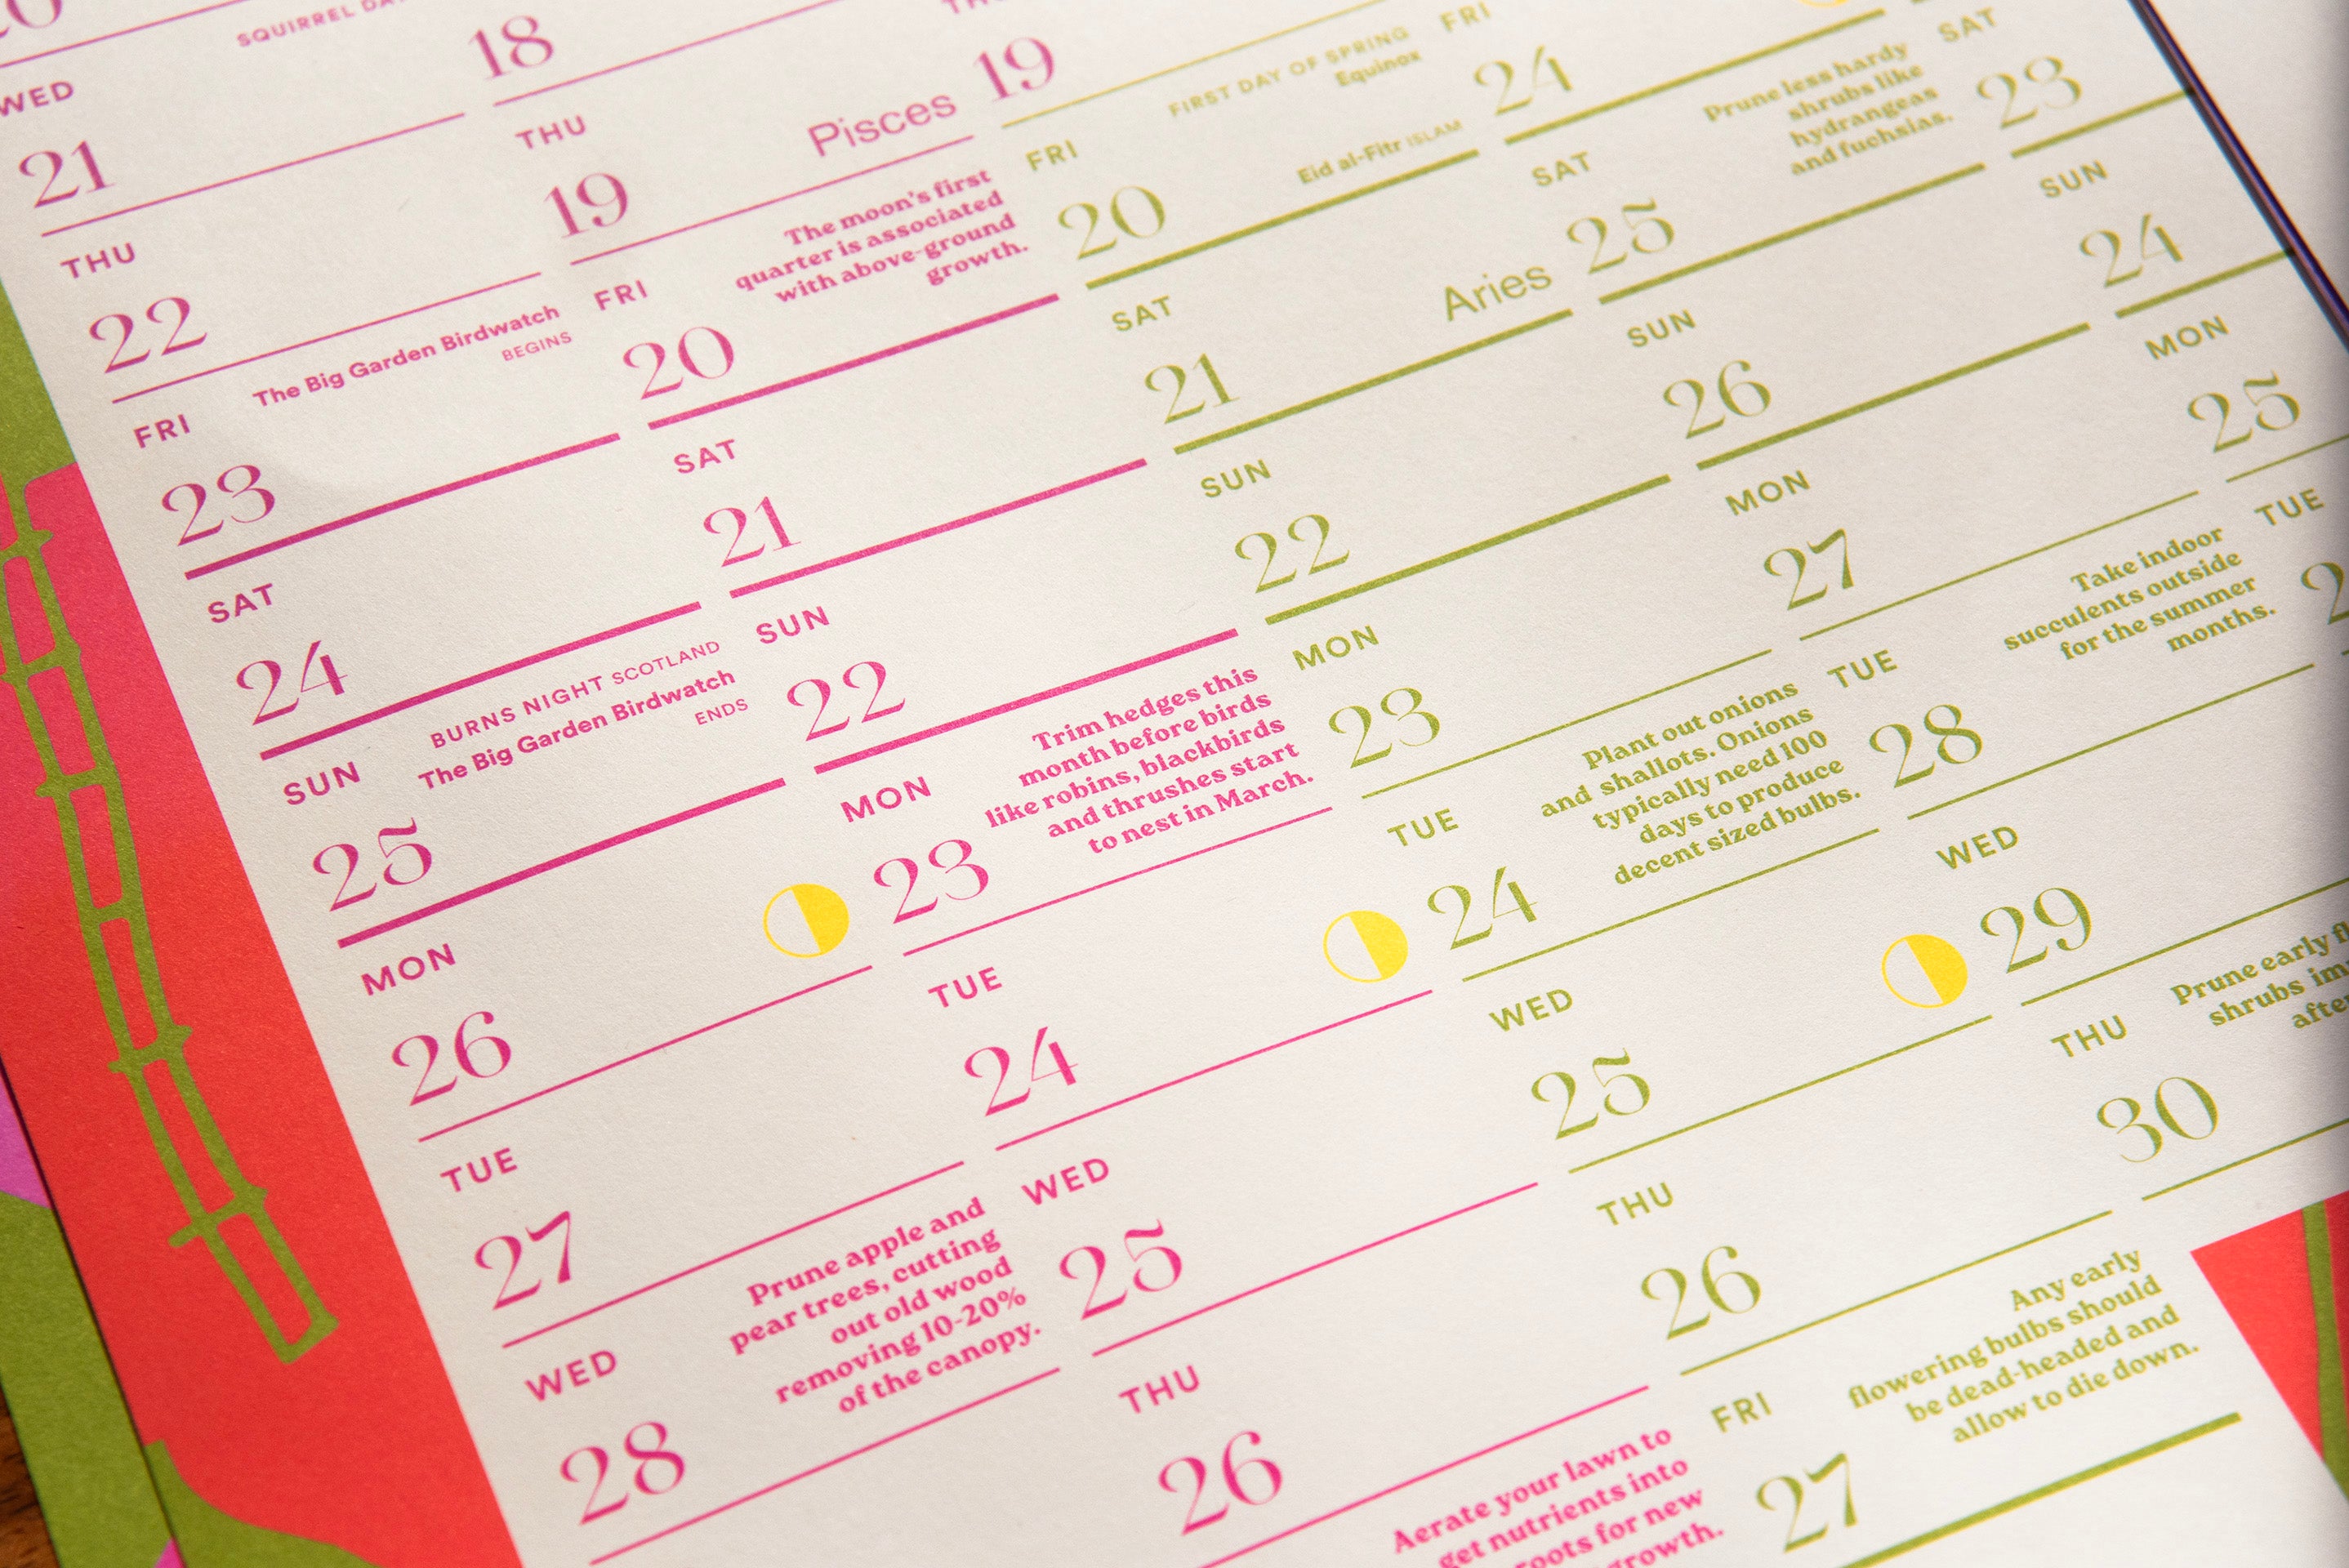 SQUIRREL
WED
21
THU
22
FRI
The Big Garden Birdwatch
BEGINS
23
SAT
24
SUN
BURNS NIGHT SCOTLAND
The Big Garden Birdwatch
ENDS
25
MON
26
TUE
27
WED
Prune apple and
pear trees, cutting
out old wood
removing 10-20%
of the canopy.
28
18
THU
Pisces
19
FRI
The moon's first
quarter is associated
with above-ground
growth.
20
SAT
21
SUN
22
MON
Trim hedges this
month before birds
like robins, blackbirds
and thrushes start
to nest in March.
23
TUE
24
WED
25
THU
26
Aerate your lawn to
get nutrients into
roots for new
growth.
19
FRI
FIRST DAY OF SPRING
Equinox
Eid al-Fitr ISLAM
20
SAT
Aries
21
SUN
22
MON
23
TUE
Plant out onions
and shallots. Onions
typically need 100
days to produce
decent sized bulbs.
24
WED
25
THU
26
FRI
Any early
flowering bulbs should
be dead-headed and
allow to die down.
27
FRI
24
SAT
Prune less hardy
shrubs like
hydrangeas
and fuchsias.
25
SUN
26
MON
27
TUE
Take indoor
succulents outside
for the summer
months.
28
WED
29
THU
Prune early
shrubs
30
SAT
23
SUN
24
MON
25
TUE